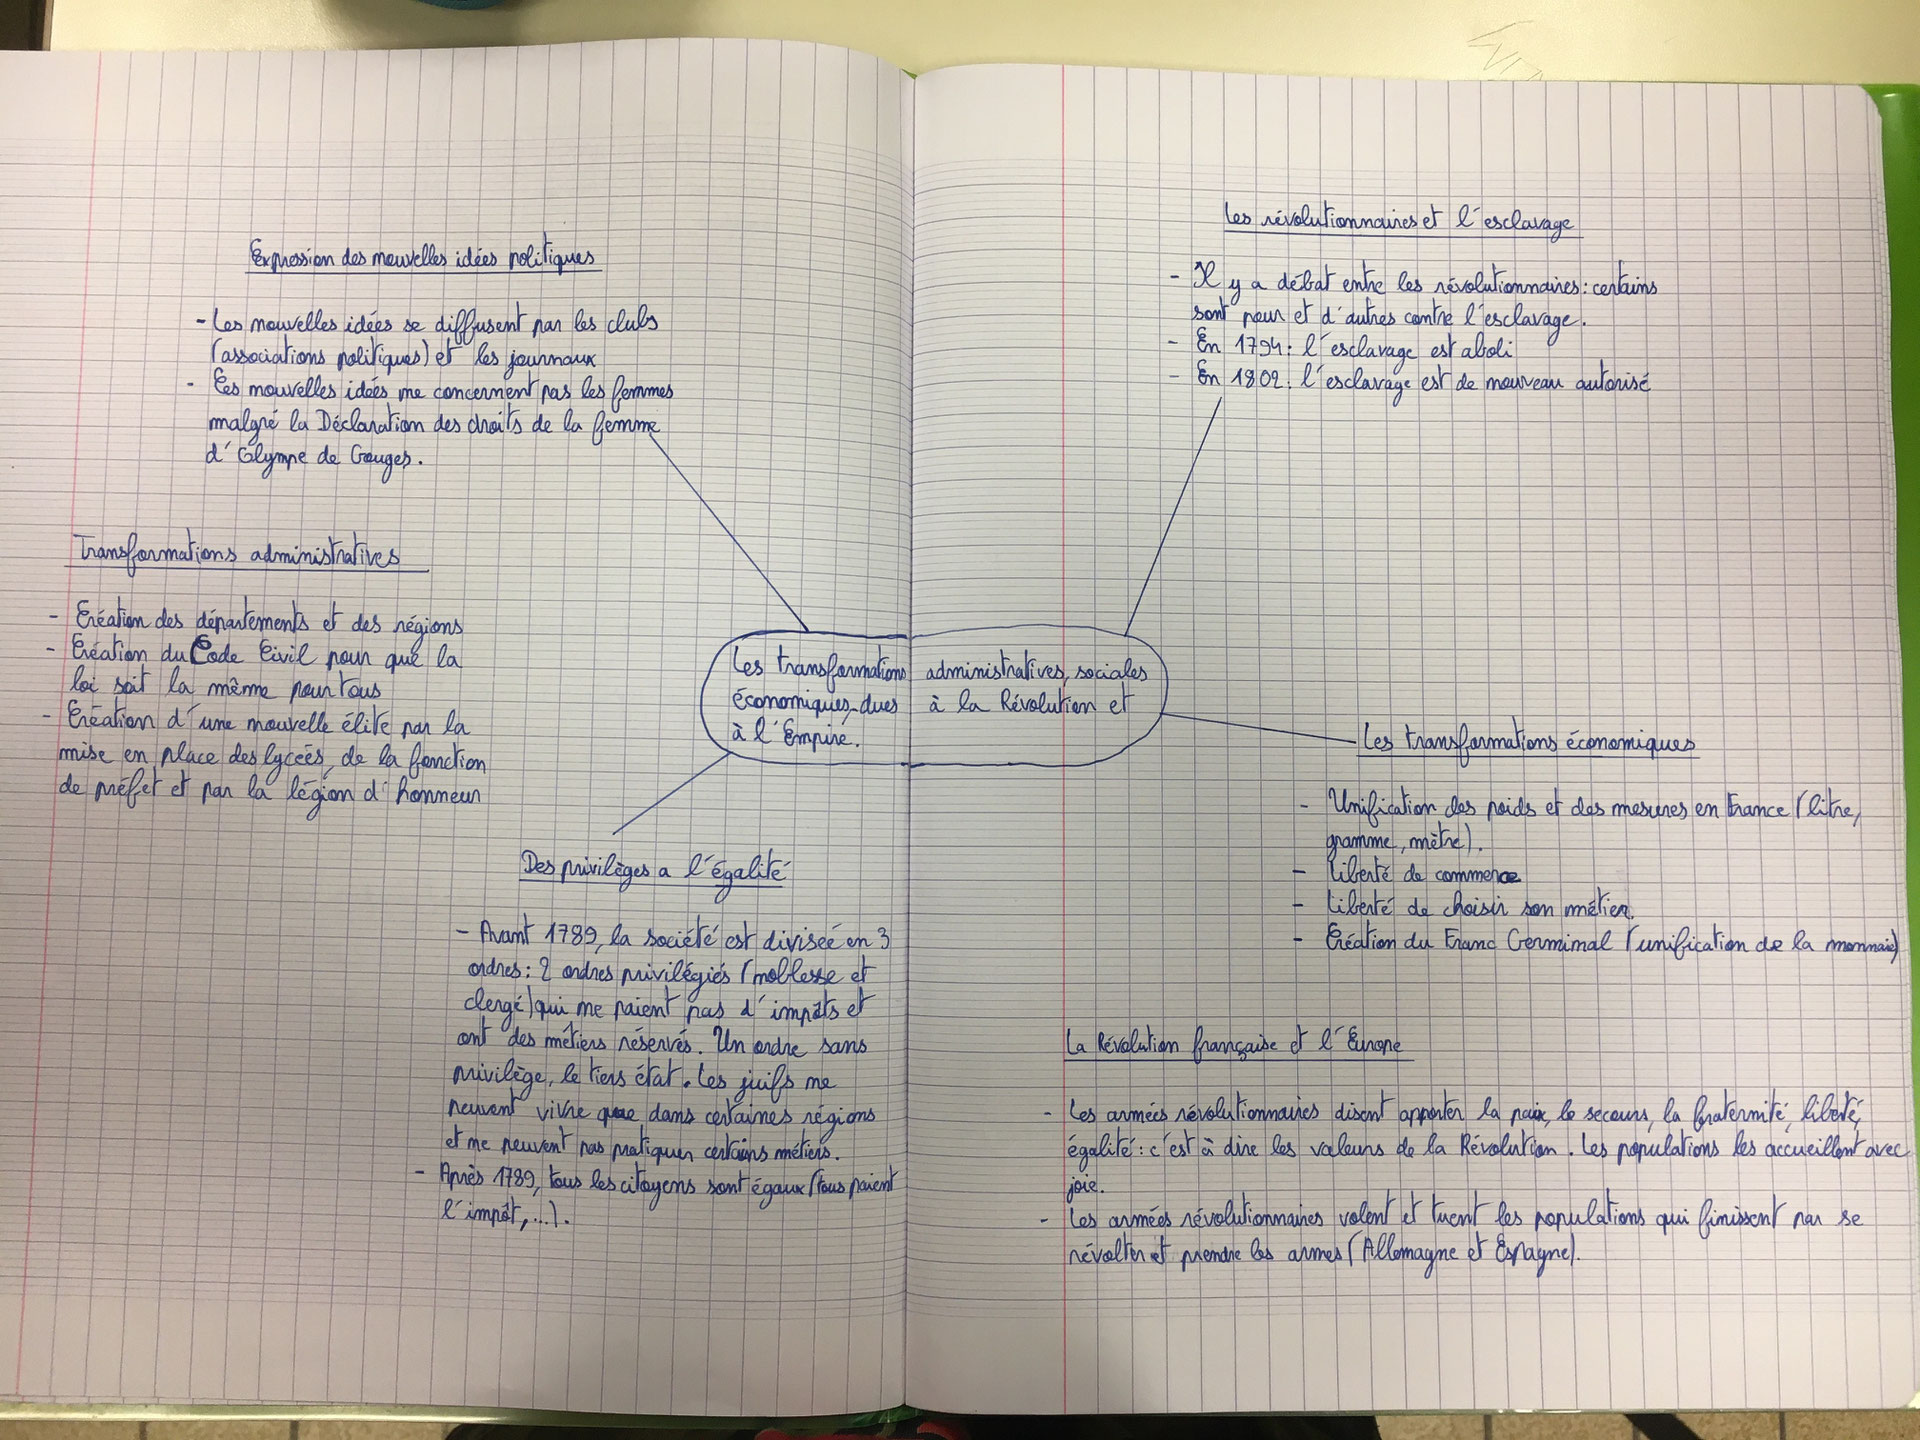 Expression des nouvelles idées politiques
- Les nouvelles idées se diffusent par les clubs
(associations politiques) et les journaux
- Ces nouvelles idées ne concernent pas les femmes
malgré la Déclaration des droits de la femme
d'Olympe de Gouges.
Transformations administratives
- Création des départements et des régions
- Création du Code Civil pour que la
loi soit la même pour tous
- Création d'une nouvelle élite par la
mise en place des lycées, de la fonction
de préfet et par la légion d'honneur
Des privilèges a l'égalité
- Avant 1789, la société est diviseé en 3
ordres : 2 ordres privilégiés (noblesse et
clergé) qui ne paient pas d'impôts et
ont des métiers réservés. Un ordre sans
privilège, le tiers état. Les juifs ne
peuvent vivre que dans certaines régions
et ne peuvent pas pratiquer certains métiers.
- Après 1789, tous les citoyens sont égaux (tous paient
l'impôt, ...).
Les transformations administratives, sociales
économiques, dues à la Révolution et
à l'Empire.
Les révolutionnaires et l'esclavage
- Il y a débat entre les révolutionnaires : certains
sont pour et d'autres contre l'esclavage.
- En 1794 : l'esclavage est aboli
- En 1802 : l'esclavage est de nouveau autorisé
Les transformations économiques
- Unification des poids et des mesures en France (litre,
gramme, mètre).
- Liberté de commerce
- Liberté de choisir son métier.
- Création du Franc Germinal (unification de la monnaie)
La Révolution française et l'Europe
- Les armées révolutionnaires disent apporter la paix, le secours, la fraternité, liberté,
égalité : c'est à dire les valeurs de la Révolution. Les populations les accueillent avec
joie.
- Les armées révolutionnaires volent et tuent les populations qui finissent par se
révolter et prendre les armes (Allemagne et Espagne).